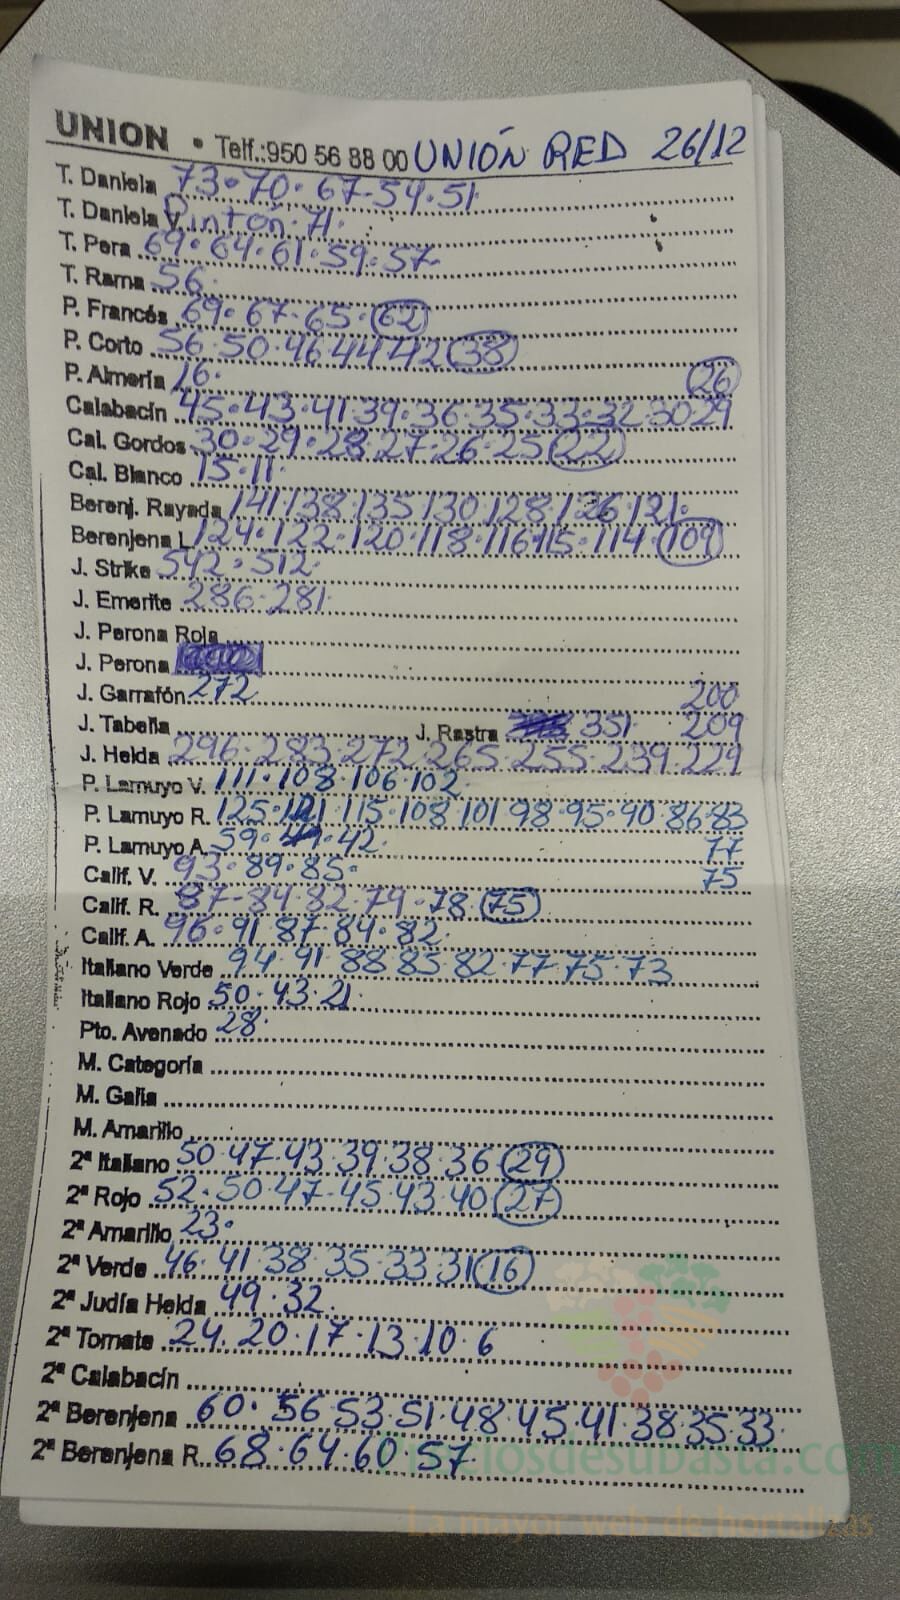 UNION • Telf.:950 56 88 00 UNIÓN RED 26/12
T. Daniela 73·70·67-54·51
T. Daniela V. Pintón·71·
T. Pera 69·64·61·59·57
T. Rama 56
P. Francés 69·67·65·62
P. Corto 56·50·46·44·42 38
P. Almería 16· 26
Calabacín 45·43·41·39·36·35·33·32·30·29
Cal. Gordos 30·29·28·27·26·25 22
Cal. Blanco 15·11·
Berenj. Rayada 141·138·135·130·128·126·121·
Berenjena L 124·122·120·118·116·115·114·109
J. Strike 542·512·
J. Emerite 286·281·
J. Perona Roja
J. Perona
J. Garrafón 272 200
J. Tabella J. Rastra 351· 209
J. Helda 296·283·272·265·255·239·229
P. Lamuyo V. 111·108·106·102
P. Lamuyo R. 125·121·115·108·101·98·95·90·86·83
P. Lamuyo A. 59· 42· 77
Calif. V. 93·89·85· 75
Calif. R. 87-84·82·79·78 75
Calif. A. 96·91·87·84·82
Italiano Verde 94·91·88·85·82·77·75·73
Italiano Rojo 50·43·21·
Pto. Avenado 28·
M. Categoría
M. Galia
M. Amarillo
2ª Italiano 50·47·43·39·38·36 29
2ª Rojo 52·50·47-45·43·40 27
2ª Amarillo 23·
2ª Verde 46·41·38·35·33·31 16
2ª Judía Helda 49·32
2ª Tomate 24·20·17·13·10·6
2ª Calabacín
2ª Berenjena 60·56·53·51·48·45·41·38·35·33
2ª Berenjena R. 68·64·60·57
Preciosdesubasta.com
La mayor web de hortalizas